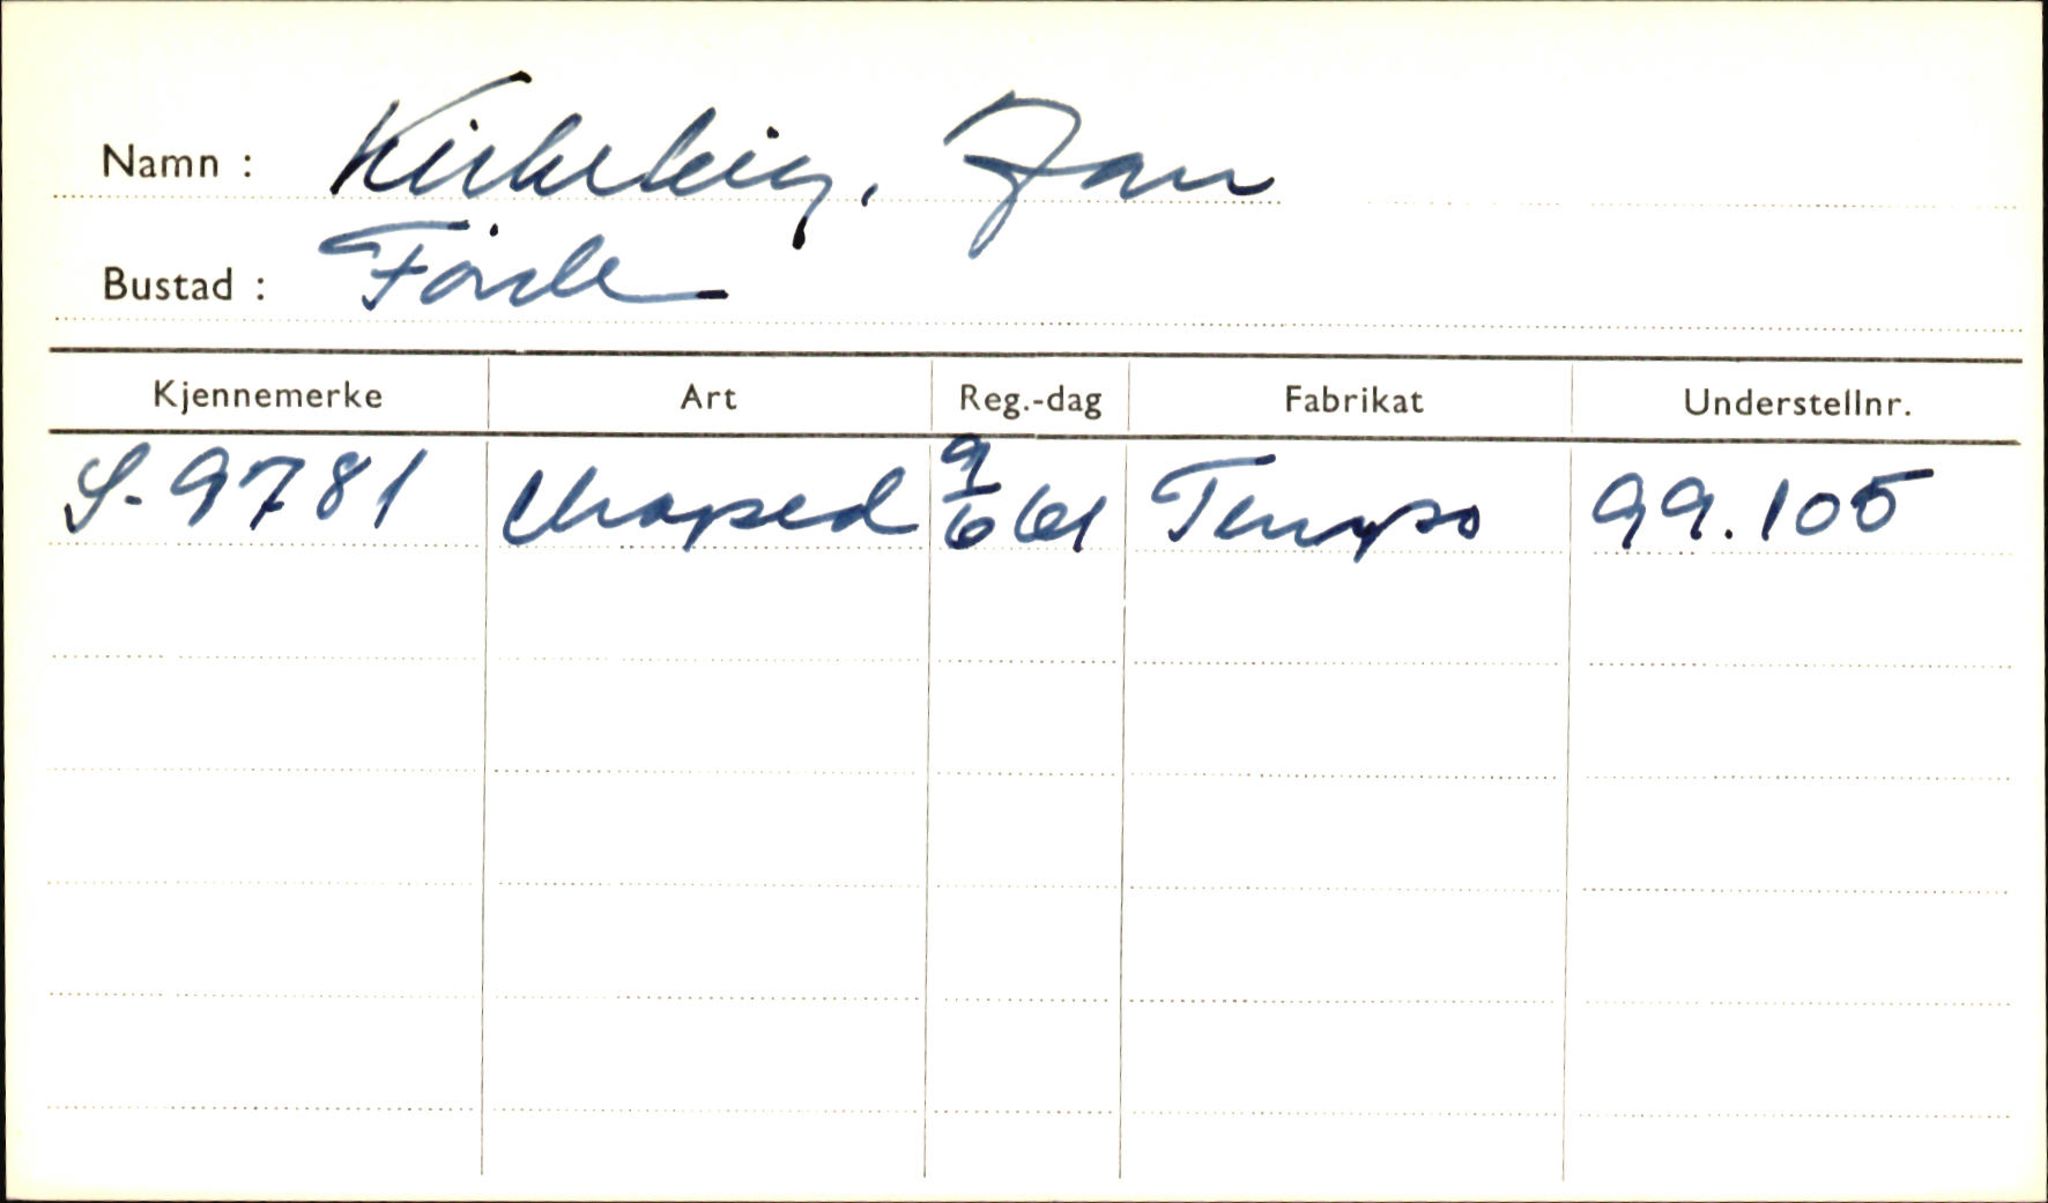 Namn : Kirkeleig, Jan
Bustad : Förde
Kjennemerke Art Reg.-dag Fabrikat Understellnr.
S-9781 Moped 9/6 61 Tempo 99.105